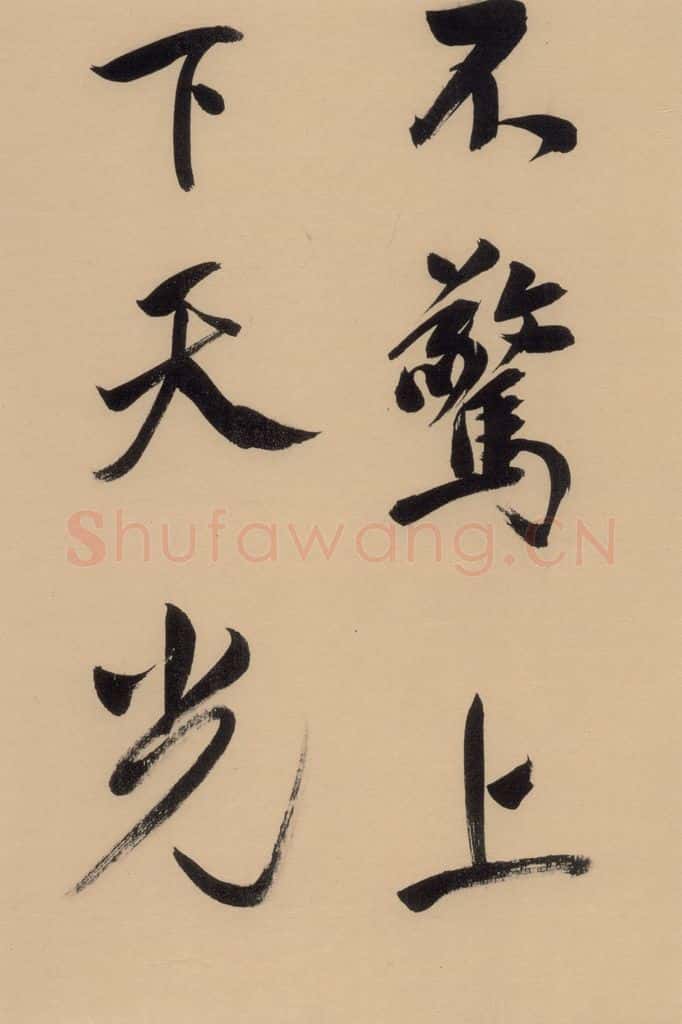 不驚上
下天光
Shufawang.CN